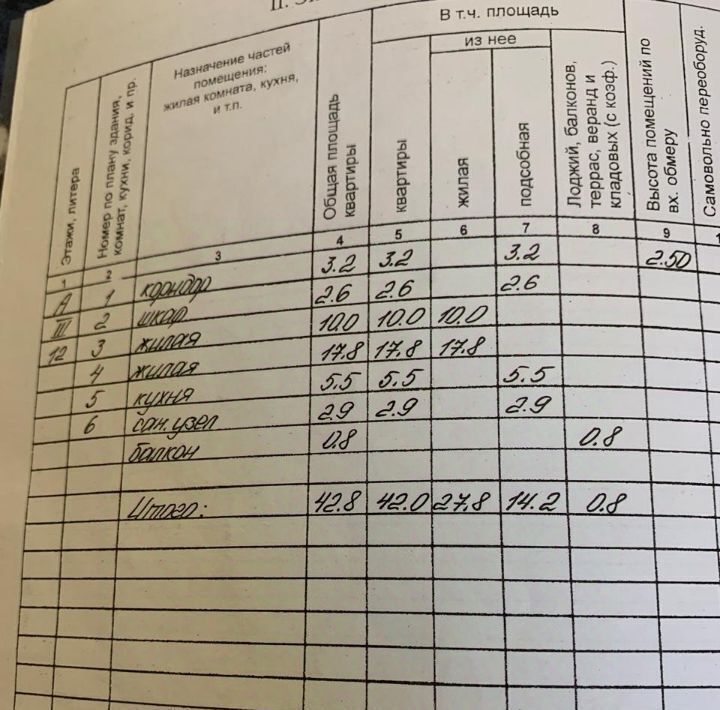 II.
В т.ч. площадь
из нее
Этажи, литера
Номер по плану здания, комнат, кухни, корид. и пр.
Назначение частей
помещения:
жилая комната, кухня,
и т.п.
Общая площадь
квартиры
квартиры
жилая
подсобная
Лоджий, балконов,
террас, веранд и
кладовых (с коэф.)
Высота помещений по
вх. обмеру
Самовольно переоборуд.
1 2 3 4 5 6 7 8 9
А 1 коридор 3.2 3.2 3.2 2.50
III 2 шкаф 2.6 2.6 2.6
12 3 жилая 10.0 10.0 10.0
4 жилая 17.8 17.8 17.8
5 кухня 5.5 5.5 5.5
6 сан.узел 2.9 2.9 2.9
балкон 0.8 0.8
Итого: 42.8 42.0 27.8 14.2 0.8